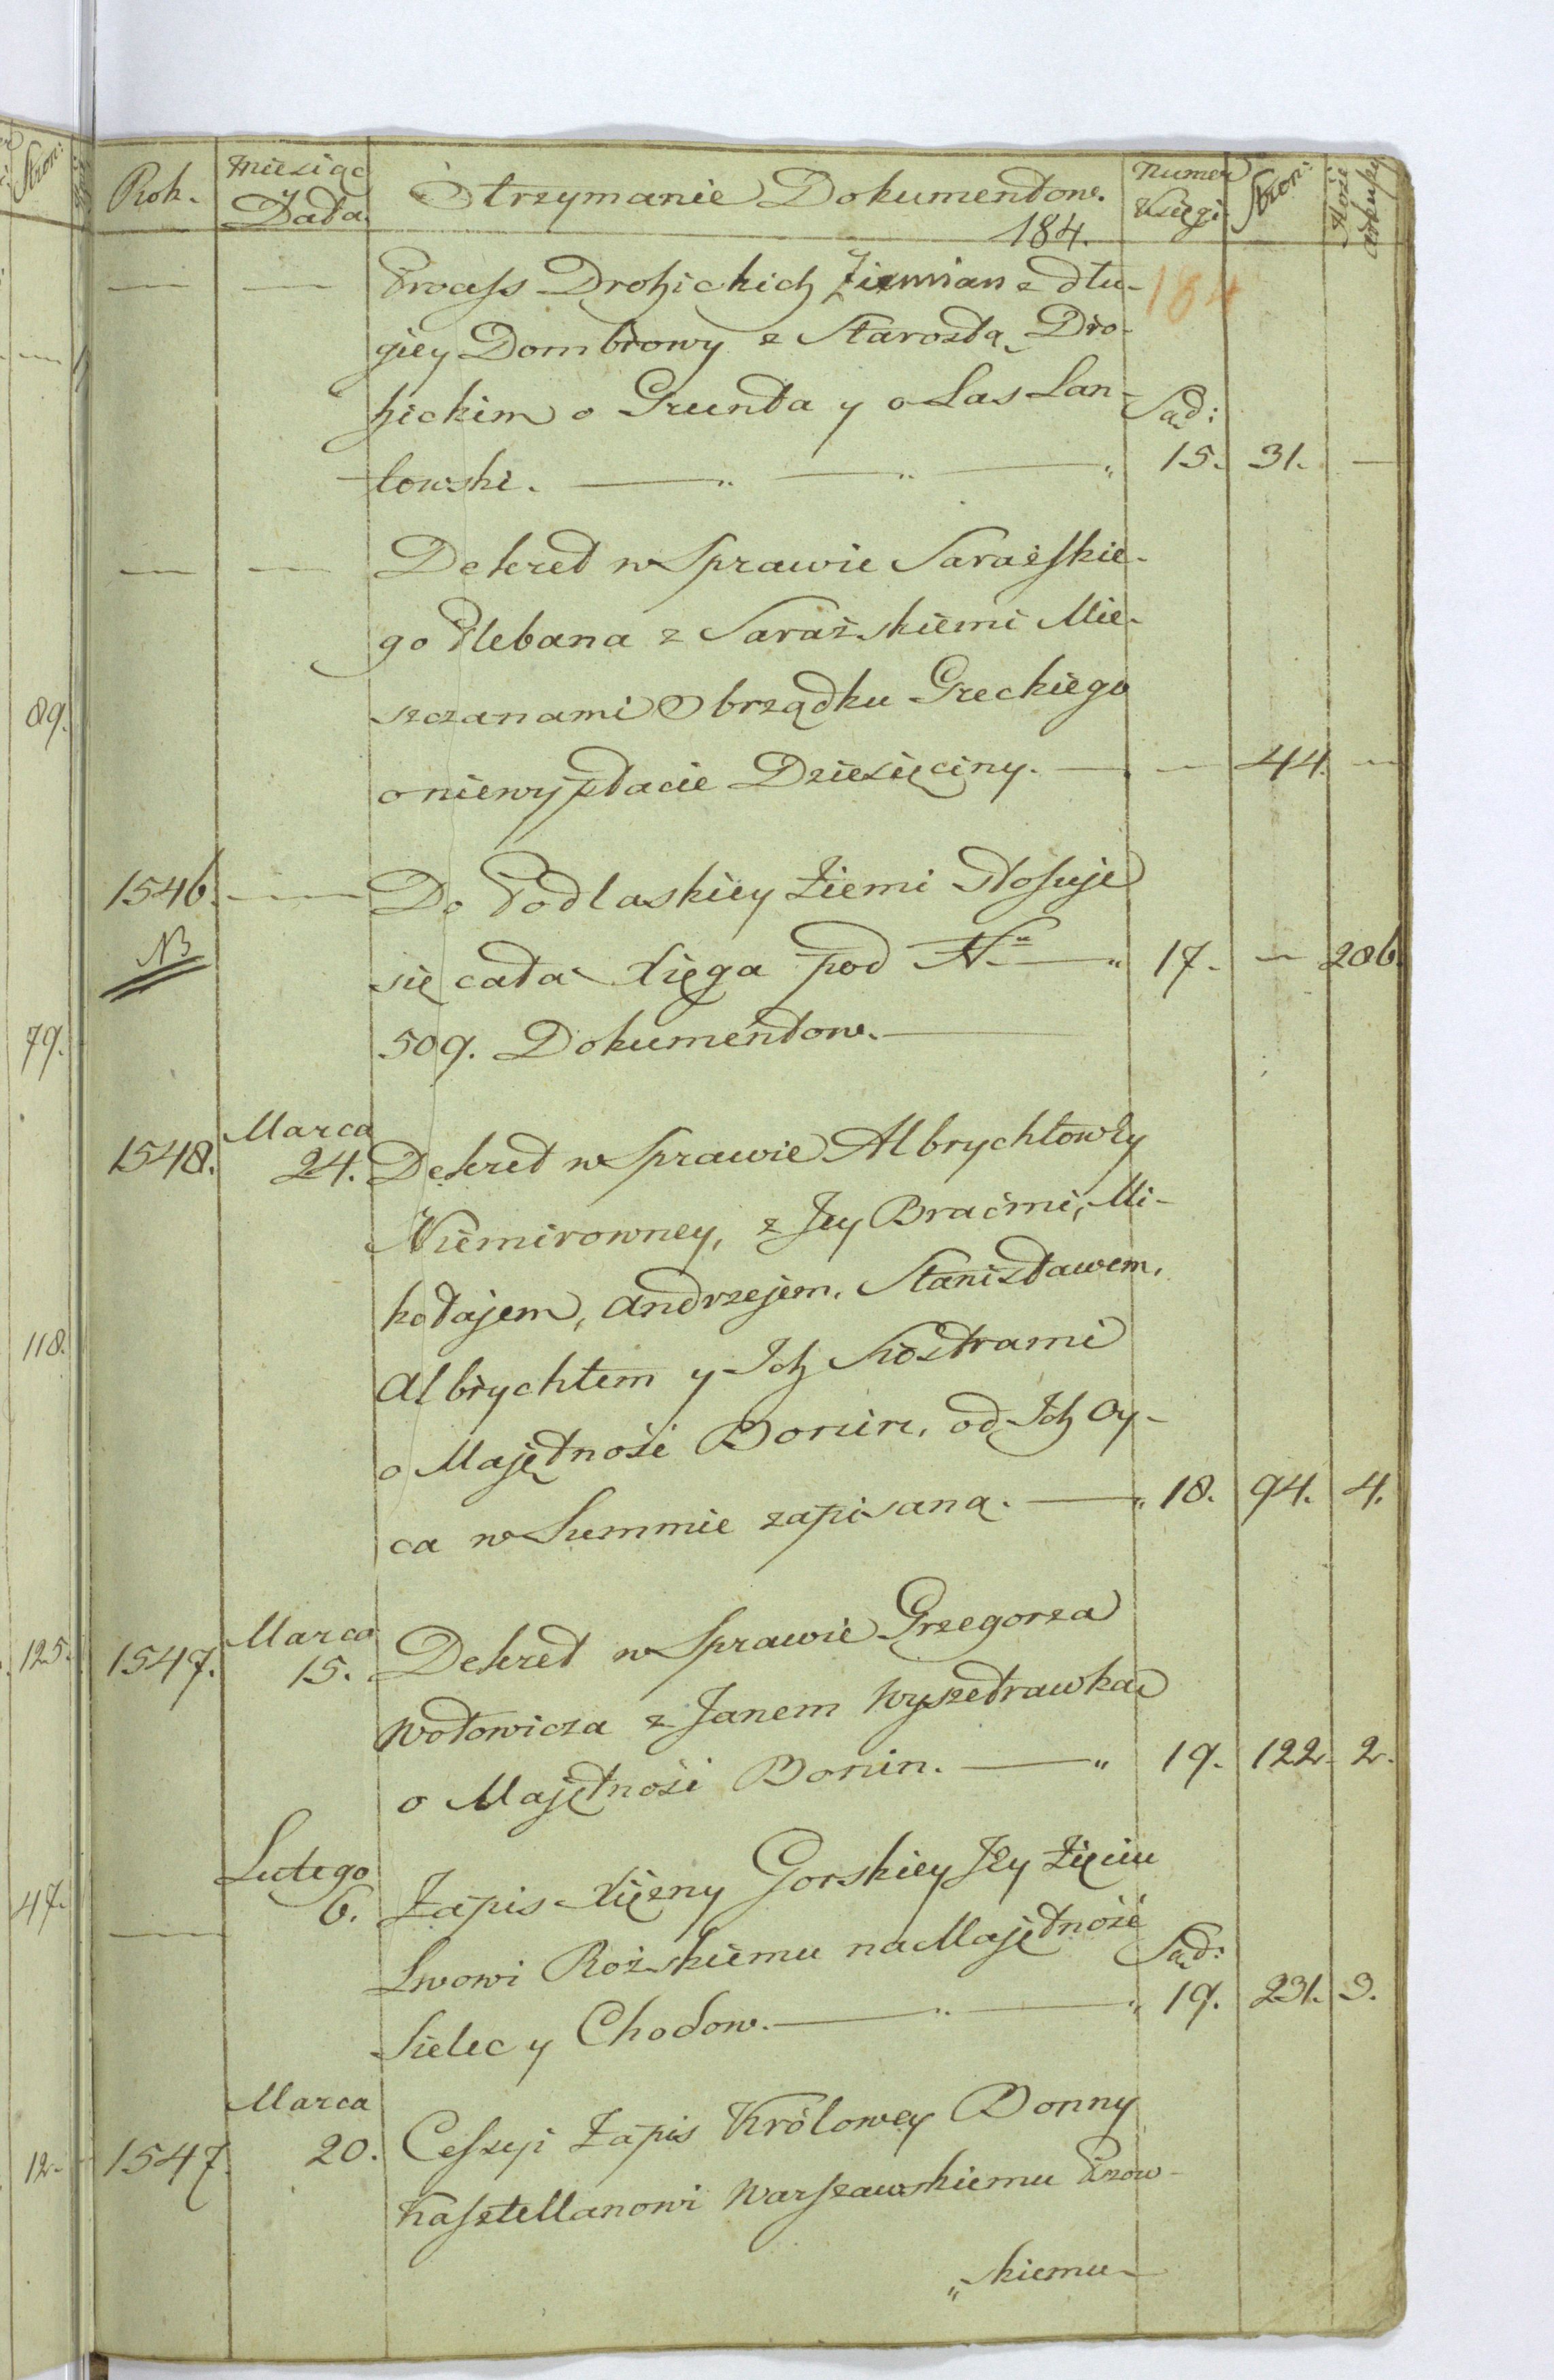 Stron:
Rok.
Miesiąc
y
Data.
Otrzymanie Dokumentow.
184.
Numer
Księgi
Stron:
Ilość
arkuszy
184
— — Process Drohickich Ziemian z dłu-
giey Dombrowy z Starostą Dro-
hickim o Grunta y o Las Lan-
Sąd:
towski. — „ — „ — „ 15. 31. —
— — Dekret w Sprawie Saraźskie-
go Plebana z Saraźskiemi Mie-
szczanami Obrządku Greckiego
o niewypłacie Dziesięciny. — — 44. —
89.
1546. — Do Podlaskiey Ziemi stosuje
NB
się cała Xięga pod N — „ 17. — 206.
509. Dokumentow. —
79.
Marca
1548. 24. Dekret w Sprawie Albrychtowey
Niemirowney, z Jey Braćmi, Mi-
kołajem, Andrzejem, Stanisławem,
Albrychtem y Ich Siostrami
118.
o Majętność Bonin, od Ich Oy-
ca w Summie zapisaną. — „ 18. 94. 4.
Marca
125. 1547. 15. Dekret w Sprawie Grzegorza
Wołowicza z Janem Wyszetrawką
o Majętność Bonin. — „ 19. 122. 2.
Lutego
47. — 6. Zapis Xiężny Gorskiey Jey Zięciu
Lwowi Rożskiemu na Majętność
Sąd:
Sielec y Chodow. — „ — „ 19. 231. 3.
Marca
12. 1547. 20. Cessyi Zapis Królowey Bonny
Kasztellanowi Warszawskiemu
„skiemu